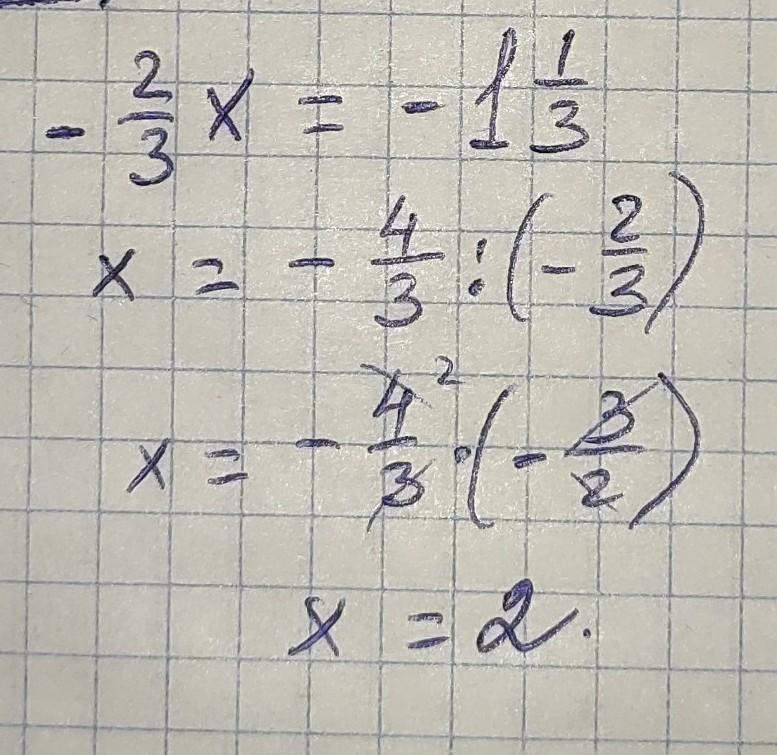 - 2/3 x = - 1 1/3
x = - 4/3 : (- 2/3)
x = - 4/3 ² · (- 3/2)
x = 2.